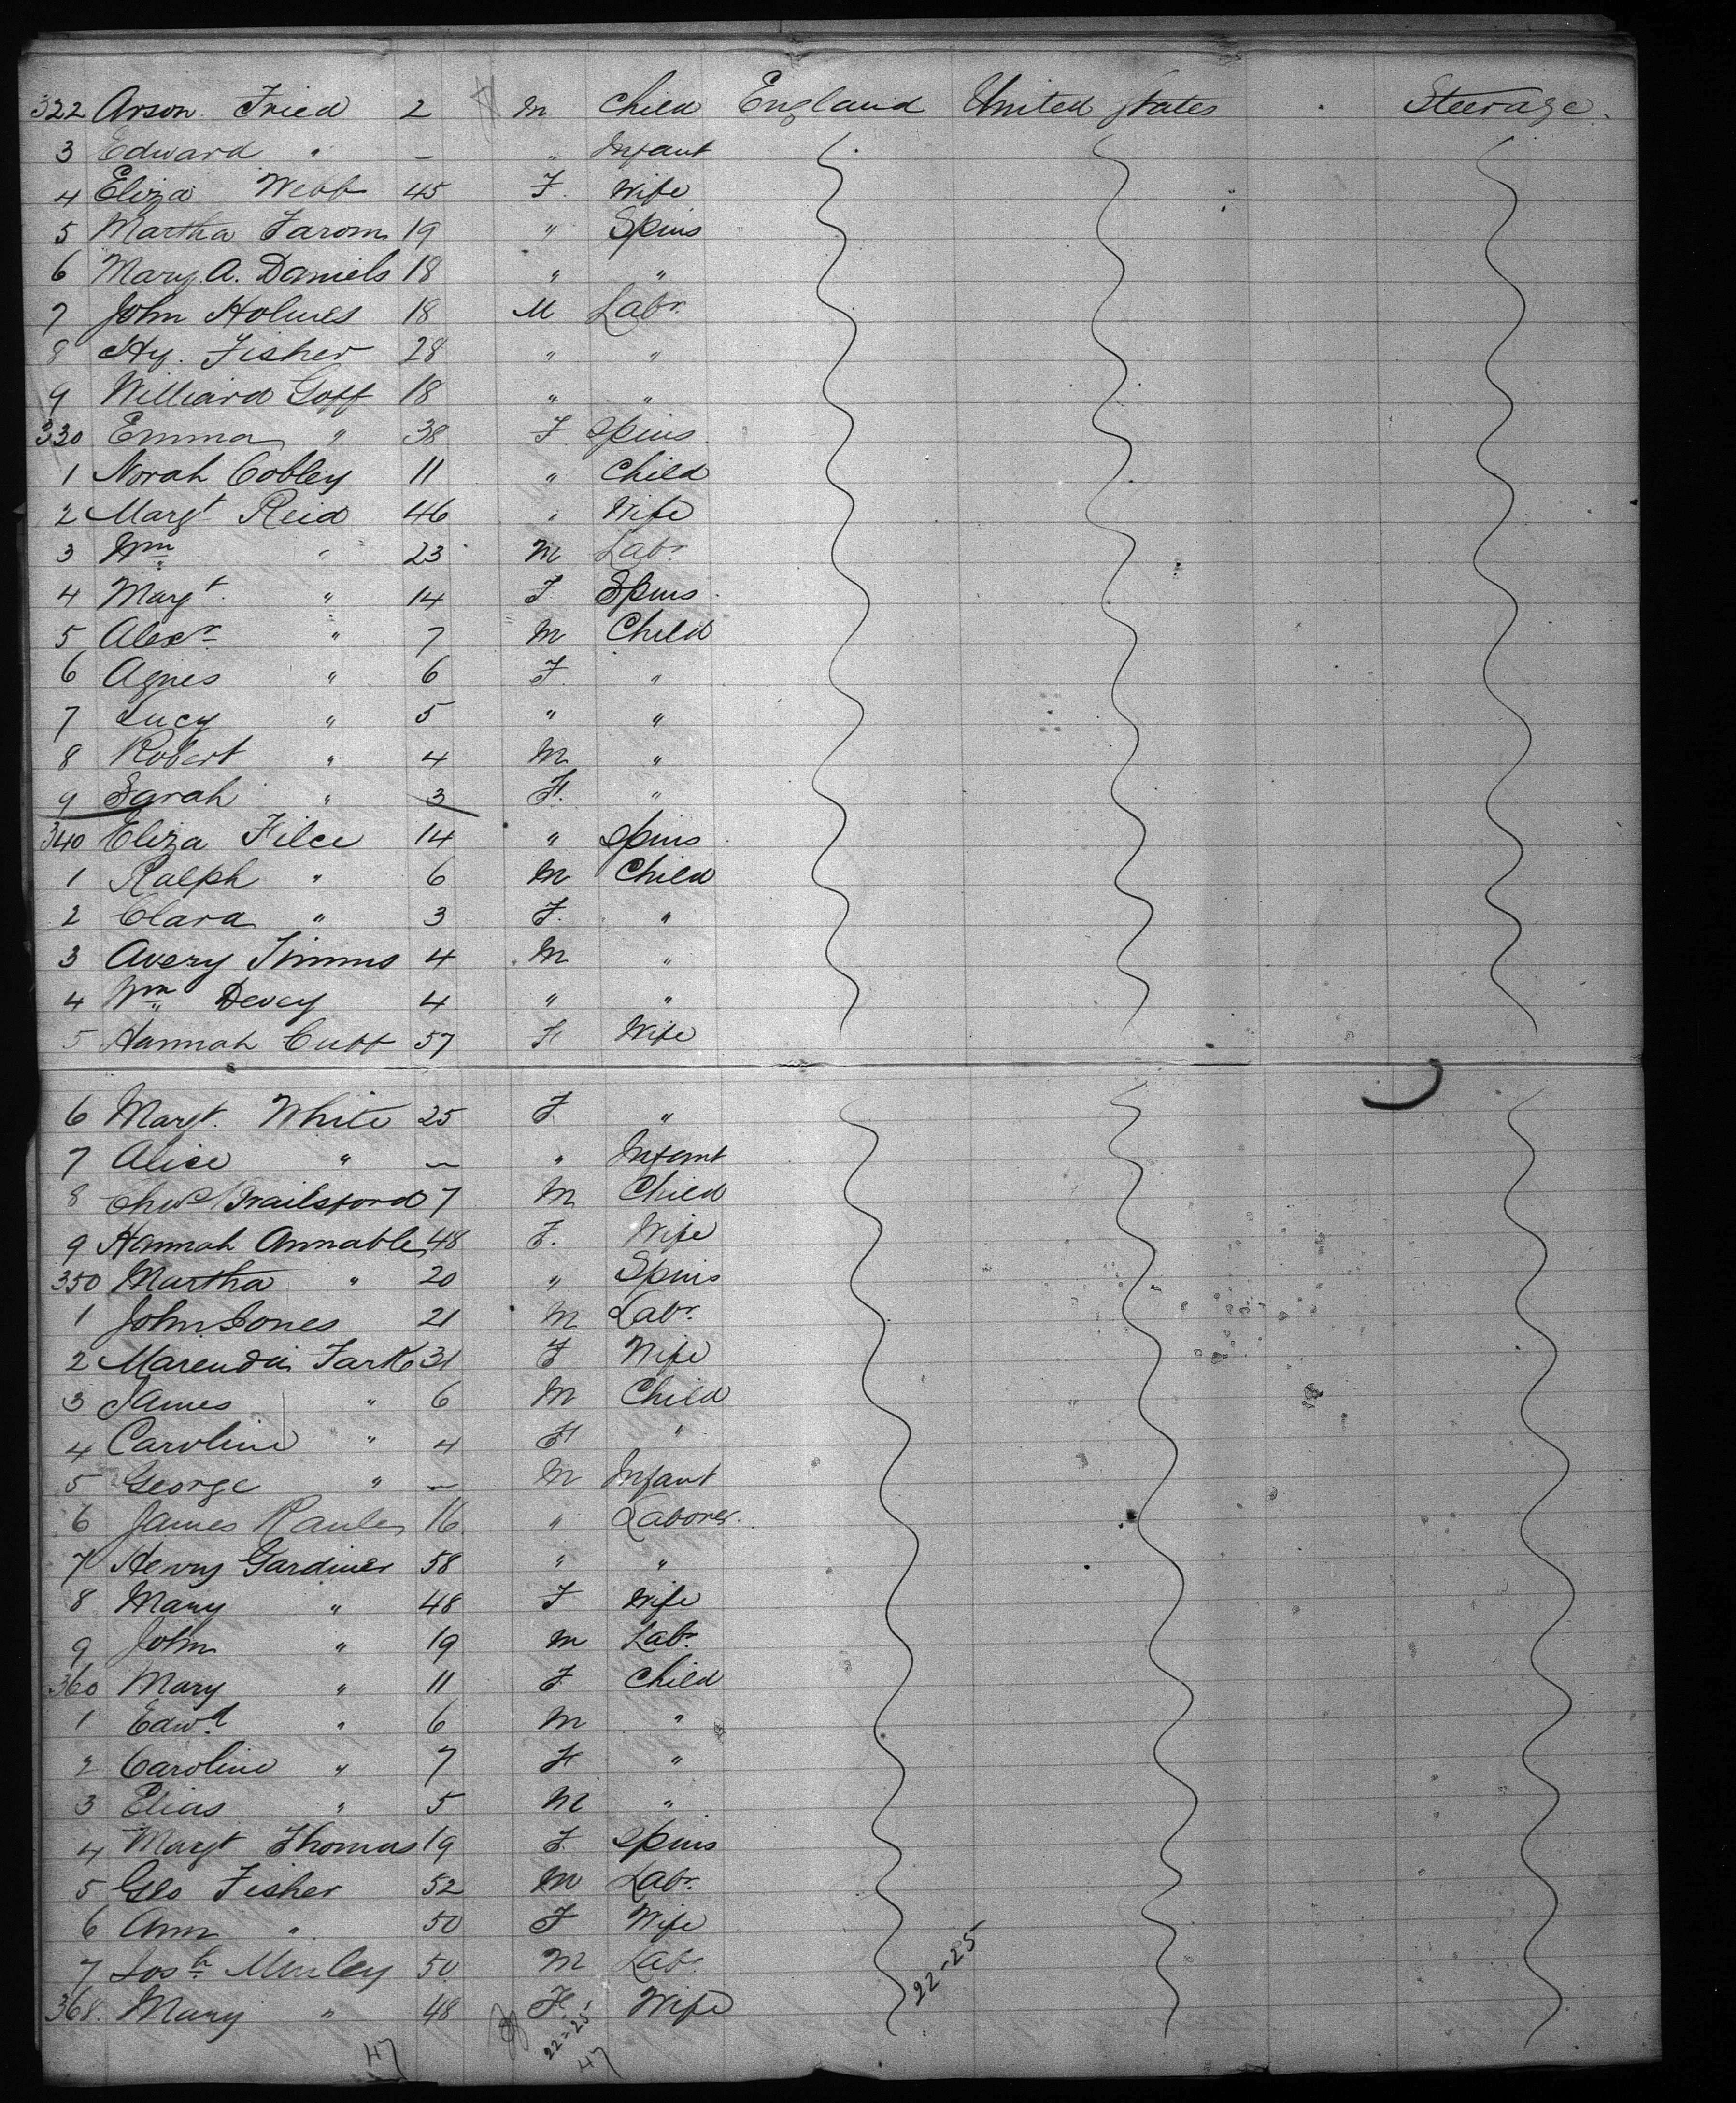 322 Arson Fried 2 M Child England United States Steerage
3 Edward " — " Infant
4 Eliza Webb 45 F. Wife
5 Martha Farom 19 " Spins
6 Mary A. Daniels 18 " "
7 John Holmes 18 M Labr.
8 Hy. Fisher 28 " "
9 William Goff 18 " "
330 Emma " 38 F Spins
1 Norah Cobley 11 " Child
2 Margt Reid 46 " Wife
3 Wm " 23 M Labr.
4 Margt. " 14 F Spins.
5 Alexr " 7 M Child
6 Agnes " 6 F. "
7 Lucy " 5 " "
8 Robert " 4 M "
9 Sarah " 3 F. "
340 Eliza Filce 14 " Spins
1 Ralph " 6 M Child
2 Clara " 3 F. "
3 Avery Timms 4 M "
4 Wm Devey 4 " "
5 Hannah Cuff 57 F Wife
6 Margt. White 25 F "
7 Alice " — " Infant
8 Brailsford 7 M Child
9 Hannah Annable 48 F. Wife
350 Martha " 20 " Spins
1 John Jones 21 M Labr.
2 31 F Wife
3 James " 6 M Child
4 Caroline " 4 F "
5 George " — M Infant
6 James 16 " Laborer.
7 Henry Gardiner 58 " "
8 Mary " 48 F Wife
9 John " 19 M Labr.
360 Mary " 11 F Child
1 Edwd " 6 M "
2 Caroline " 7 F "
3 Elias " 5 M "
4 Margt Thomas 19 F. Spins
5 Geo Fisher 52 M Labr.
6 Ann " 50 F Wife
7 Josh Morley 50 M Labr.
368. Mary " 48 F. Wife
22-25
22-25
47
47